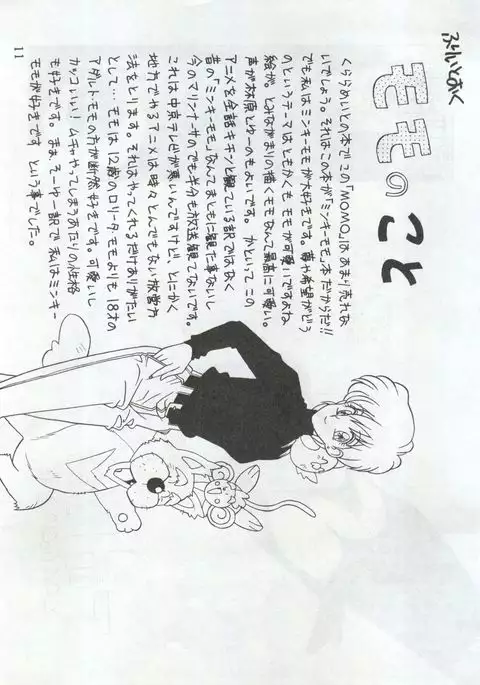 ふりいとおく
モモのこと
くららめいとの本でこの「MOMO」はあまり売れな
いでしょう。それはこの本が「ミンキーモモ」本だからだ!!
でも私はミンキーモモが大好きです。夢や希望がどう
のというテーマはともかくもモモが可愛いですよね
絵が。とみながまりの描くモモなんて最高に可愛い。
声が林原とゆーのもよいです。かといってこの
アニメを全話キチンと観ている訳ではなく
昔の「ミンキーモモ」なんてまともに観た事ないし
今のマリンナーサのでも半分も放送観てないです。
これは中京テレビが悪いんですけど!とにかく
地方でやるアニメは時々とんでもない放営方
法をとります。それはやってくれるだけありがたい
として…モモは12歳のロリータモモよりも18才の
アダルトモモの方が断然好きです。可愛いし
カッコいい!ムチャやってしまうあたりの性格
も好きです。まぁそーゆー訳で私はミンキー
モモが好きですという事でした。
11